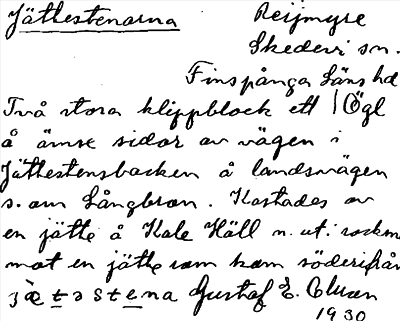 Jättestenarna Reijmyre
Skedevi sn.
Finspånga Läns hd
Två stora klippblock ett /Ögl
å ömse sidor av vägen i
Jättestensbacken å landsvägen
s. om Långbron. Kastades av
en jätte å Kale Häll n. ut i
mot en jätte som kom söderifrån
Gustaf E.
1930